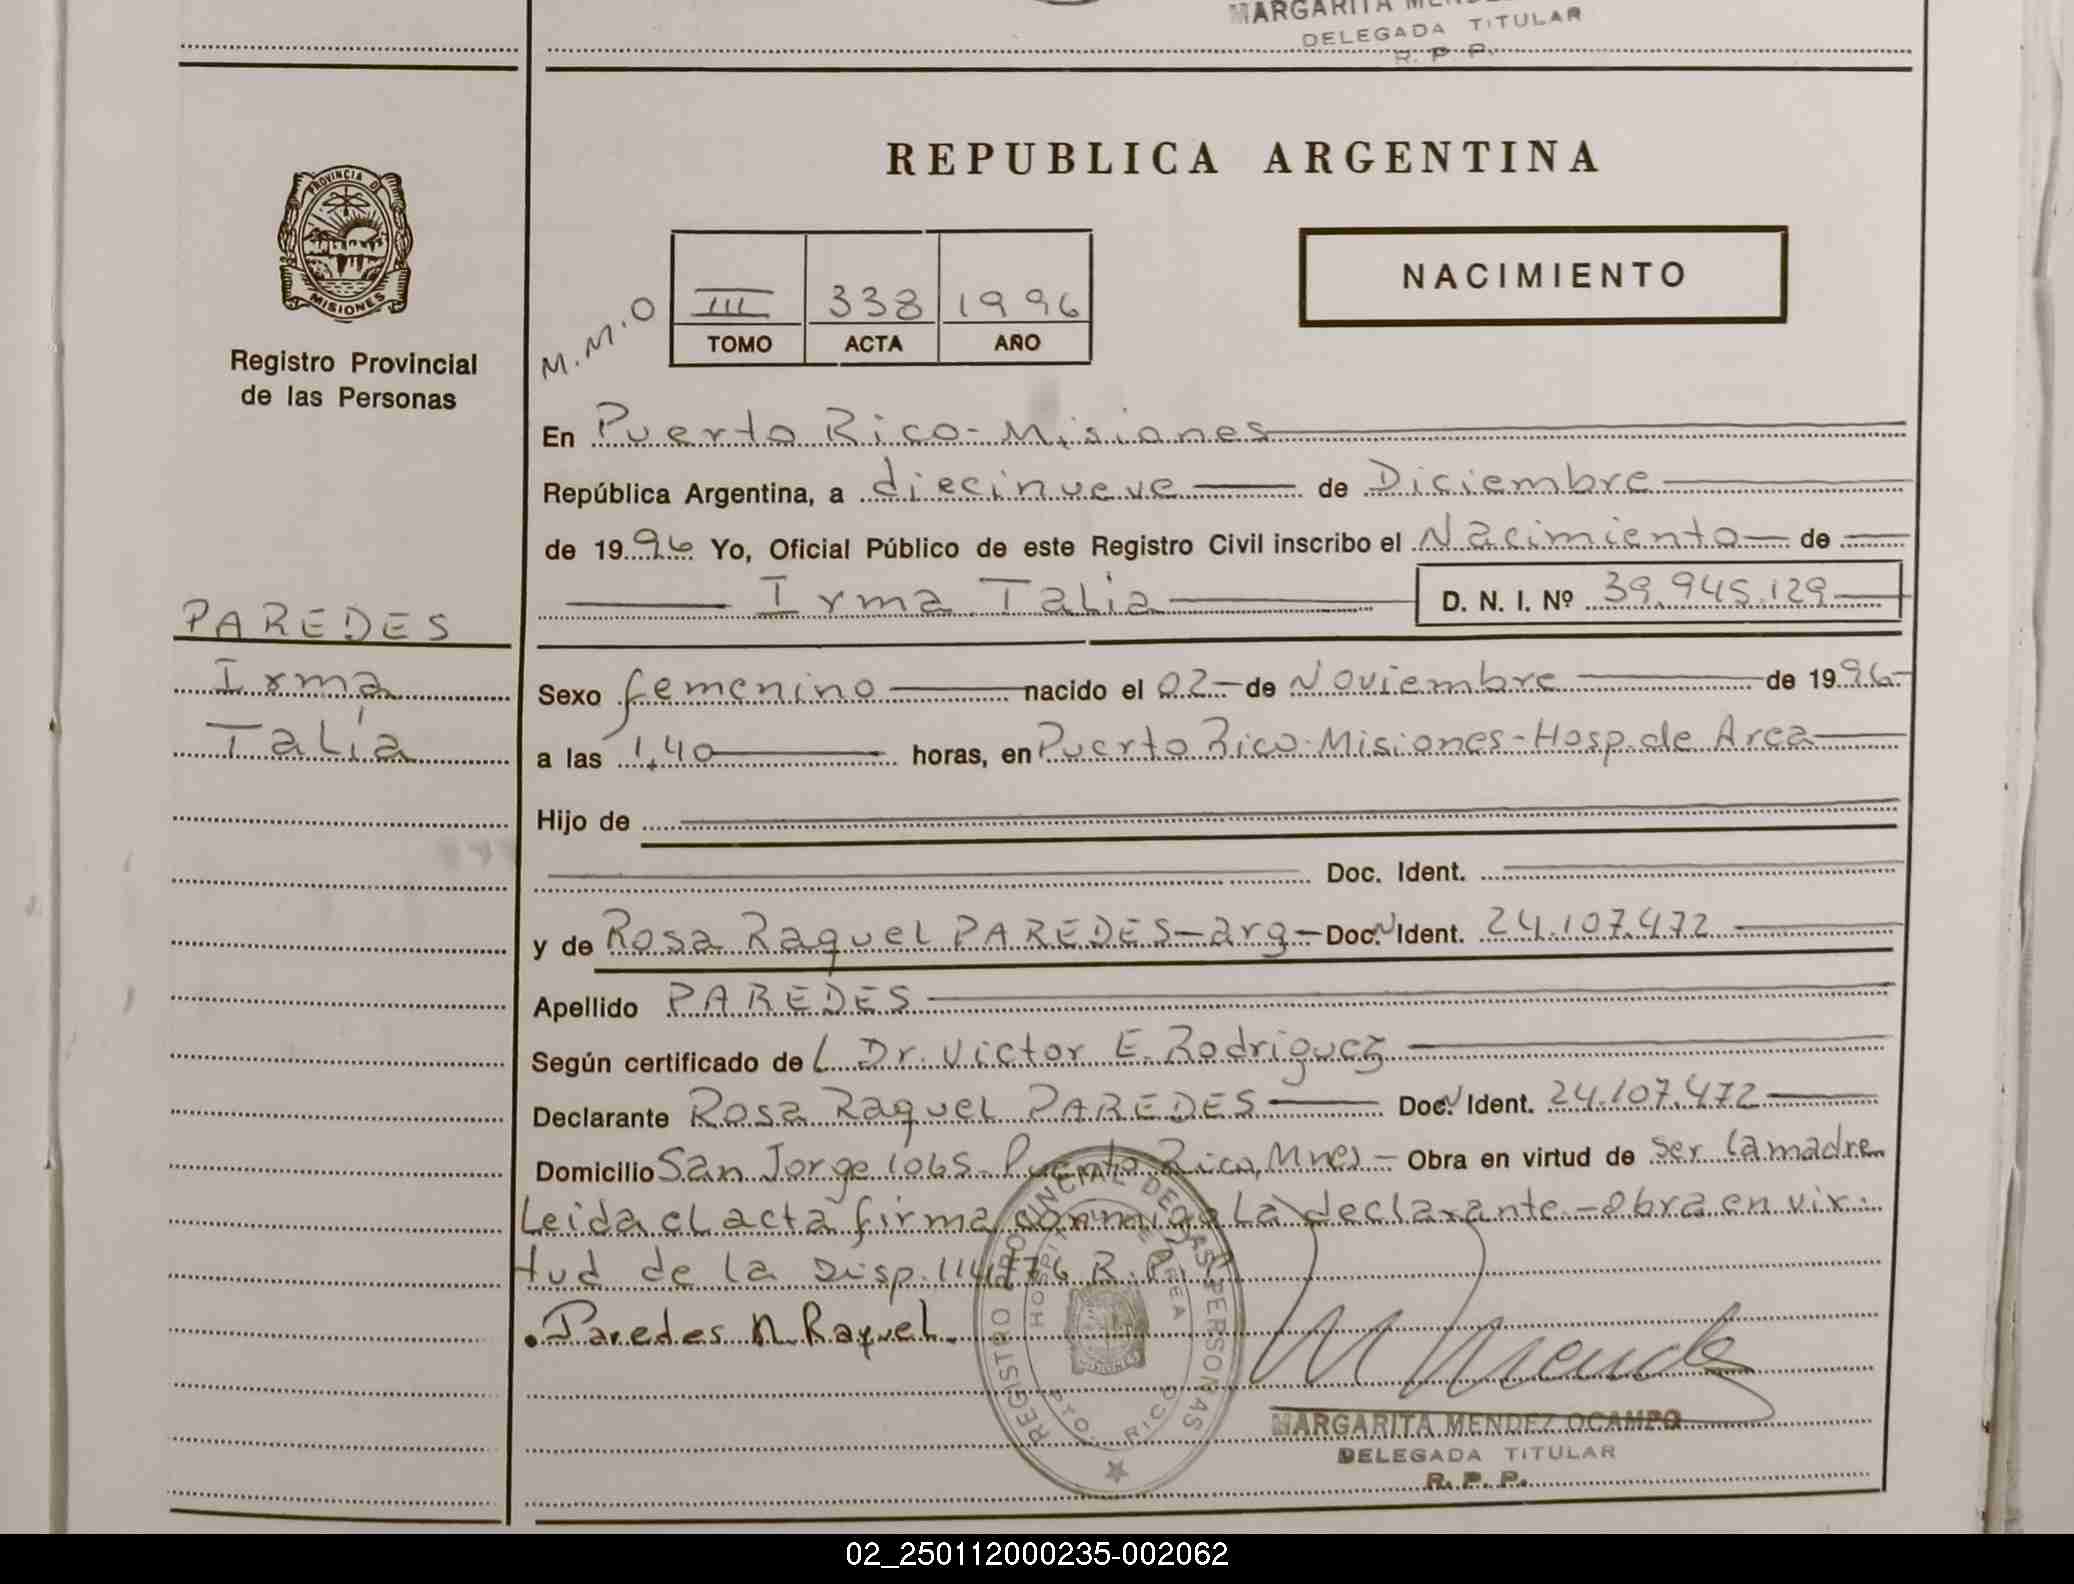 MARGARITA
DELEGADA TITULAR
R. P. P.
PROVINCIA DE
MISIONES
Registro Provincial
de las Personas
PAREDES
Irma
Talía
REPUBLICA ARGENTINA
NACIMIENTO
M.M.O
III 338 1996
TOMO ACTA AÑO
En Puerto Rico - Misiones
República Argentina, a diecinueve de Diciembre
de 1996 Yo, Oficial Público de este Registro Civil inscribo el Nacimiento de
Irma Talía D. N. I. Nº 39.945.129
Sexo femenino nacido el 02 de Noviembre de 1996
a las 1,40 horas, en Puerto Rico-Misiones-Hosp. de Area
Hijo de
Doc. Ident.
y de Rosa Raquel PAREDES-arg- Doc. N Ident. 24.107.472
Apellido PAREDES
Según certificado de L Dr. Victor E. Rodriguez
Declarante Rosa Raquel PAREDES Doc. N Ident. 24.107.472
Domicilio San Jorge 1065- Puerto Rico, Mnes- Obra en virtud de ser la madre
Leida el acta firma conmigo La declarante-Obra en vir-
tud de la Disp. R. P. P.
Paredes Raquel
REGISTRO PROVINCIAL DE LAS PERSONAS
HOSPITAL DE AREA
PTO. RICO
MISIONES
M Mendez
MARGARITA MENDEZ OCAMPO
DELEGADA TITULAR
R. P. P.
02_250112000235-002062